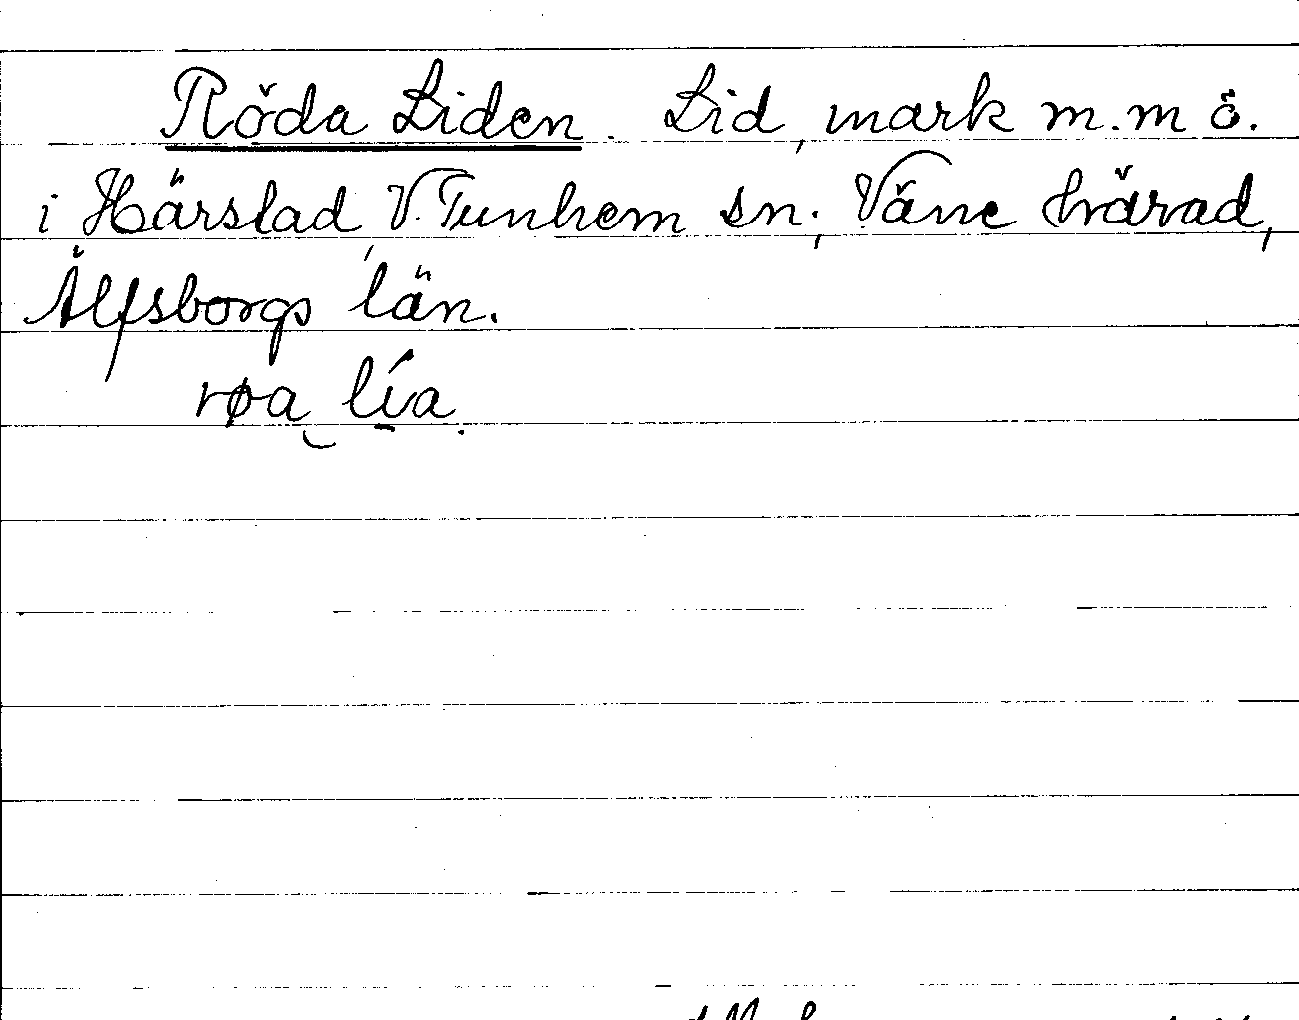 Röda Liden. Lid, mark m.m ö.
i Härstad, V. Tunhem sn., Väne härad,
Älfsborgs län.
røa lía.